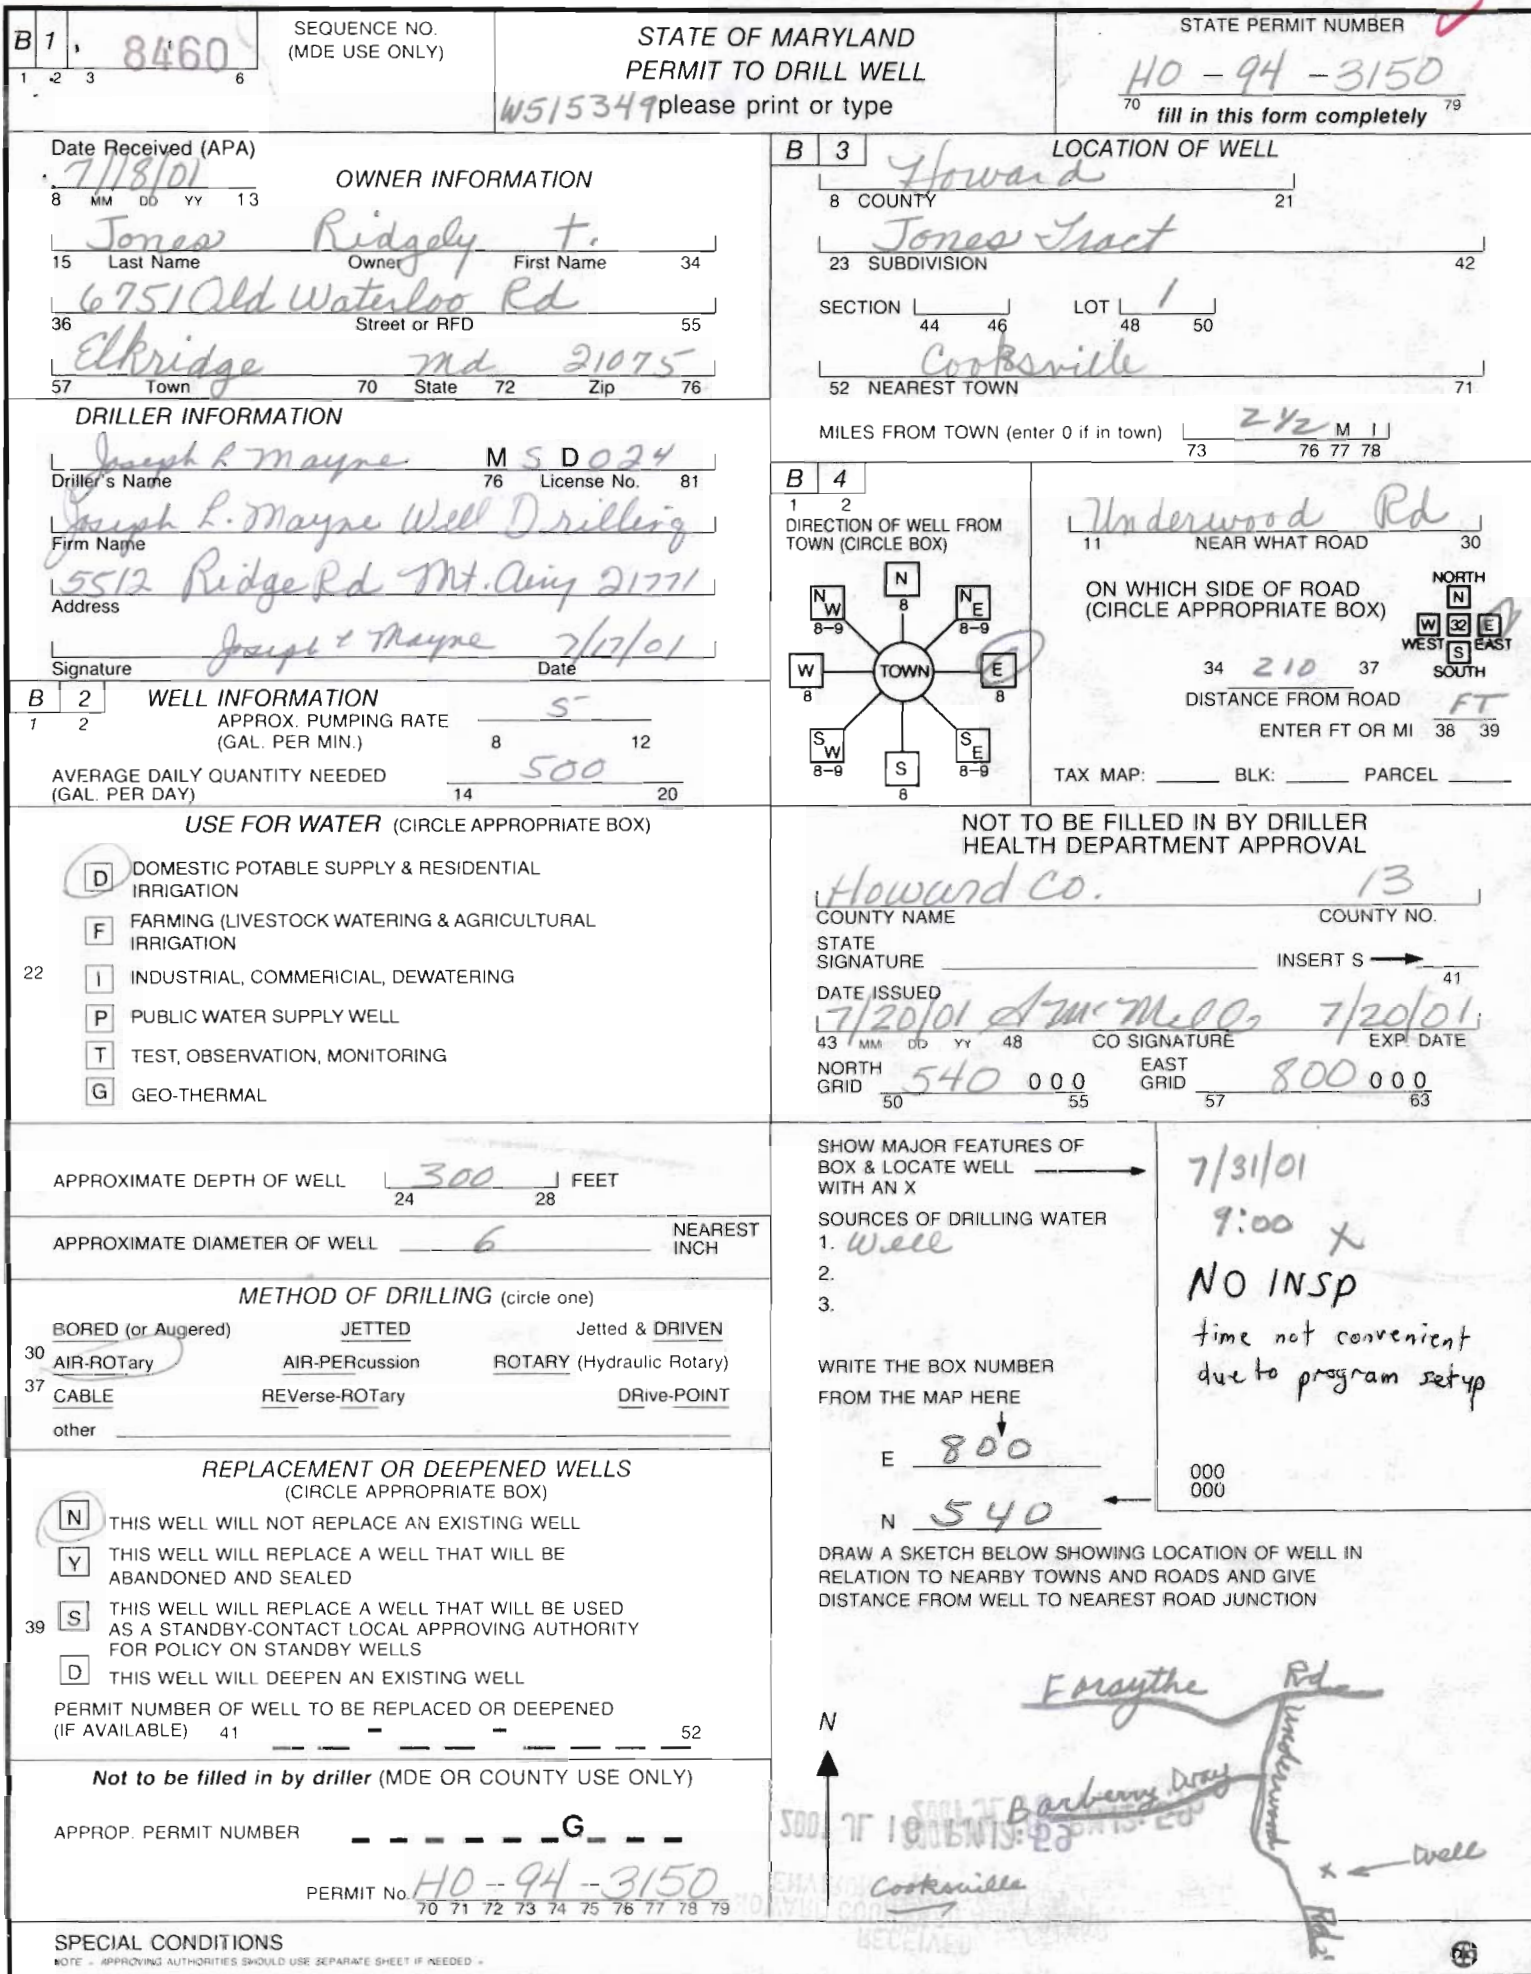 B 1 , 8460
1 2 3 6
SEQUENCE NO.
(MDE USE ONLY)
STATE OF MARYLAND
PERMIT TO DRILL WELL
W515349 please print or type
STATE PERMIT NUMBER
HO - 94 - 3150
70 79
fill in this form completely
Date Received (APA)
7/18/01
8 MM DD YY 13
OWNER INFORMATION
Jones Ridgely T.
15 Last Name Owner First Name 34
6751 Old Waterloo Rd
36 Street or RFD 55
Elkridge Md 21075
57 Town 70 State 72 Zip 76
DRILLER INFORMATION
Joseph L Mayne M S D 024
Driller's Name 76 License No. 81
Joseph L. Mayne Well Drilling
Firm Name
5512 Ridge Rd Mt. Airy 21771
Address
Joseph L Mayne 7/17/01
Signature Date
B 2 WELL INFORMATION
1 2
APPROX. PUMPING RATE 5
(GAL. PER MIN.) 8 12
AVERAGE DAILY QUANTITY NEEDED 500
(GAL. PER DAY) 14 20
USE FOR WATER (CIRCLE APPROPRIATE BOX)
D DOMESTIC POTABLE SUPPLY & RESIDENTIAL
IRRIGATION
F FARMING (LIVESTOCK WATERING & AGRICULTURAL
IRRIGATION
22
I INDUSTRIAL, COMMERICIAL, DEWATERING
P PUBLIC WATER SUPPLY WELL
T TEST, OBSERVATION, MONITORING
G GEO-THERMAL
APPROXIMATE DEPTH OF WELL 300 FEET
24 28
APPROXIMATE DIAMETER OF WELL 6 NEAREST
INCH
METHOD OF DRILLING (circle one)
BORED (or Augered) JETTED Jetted & DRIVEN
30 AIR-ROTary AIR-PERcussion ROTARY (Hydraulic Rotary)
37 CABLE REVerse-ROTary DRive-POINT
other
REPLACEMENT OR DEEPENED WELLS
(CIRCLE APPROPRIATE BOX)
N THIS WELL WILL NOT REPLACE AN EXISTING WELL
Y THIS WELL WILL REPLACE A WELL THAT WILL BE
ABANDONED AND SEALED
39 S THIS WELL WILL REPLACE A WELL THAT WILL BE USED
AS A STANDBY-CONTACT LOCAL APPROVING AUTHORITY
FOR POLICY ON STANDBY WELLS
D THIS WELL WILL DEEPEN AN EXISTING WELL
PERMIT NUMBER OF WELL TO BE REPLACED OR DEEPENED
(IF AVAILABLE) 41 - - 52
Not to be filled in by driller (MDE OR COUNTY USE ONLY)
APPROP. PERMIT NUMBER G
PERMIT No. HO - 94 - 3150
70 71 72 73 74 75 76 77 78 79
SPECIAL CONDITIONS
NOTE - APPROVING AUTHORITIES SHOULD USE SEPARATE SHEET IF NEEDED -
B 3 LOCATION OF WELL
Howard
8 COUNTY 21
Jones Tract
23 SUBDIVISION 42
SECTION LOT 1
44 46 48 50
Cooksville
52 NEAREST TOWN 71
MILES FROM TOWN (enter 0 if in town) 2 1/2 M I
73 76 77 78
B 4
1 2
DIRECTION OF WELL FROM
TOWN (CIRCLE BOX)
N
8
N W N E
8-9 8-9
W TOWN E
8 8
S W S E
8-9 8-9
S
8
Underwood Rd
11 NEAR WHAT ROAD 30
ON WHICH SIDE OF ROAD
(CIRCLE APPROPRIATE BOX)
NORTH
N
W 32 E
WEST S EAST
SOUTH
34 210 37
DISTANCE FROM ROAD FT
ENTER FT OR MI 38 39
TAX MAP: BLK: PARCEL
NOT TO BE FILLED IN BY DRILLER
HEALTH DEPARTMENT APPROVAL
Howard Co. 13
COUNTY NAME COUNTY NO.
STATE
SIGNATURE INSERT S
41
DATE ISSUED
7/20/01 7/20/01
43 MM DD YY 48 CO SIGNATURE EXP. DATE
NORTH
GRID 540 000 EAST
GRID 800 000
50 55 57 63
SHOW MAJOR FEATURES OF
BOX & LOCATE WELL
WITH AN X
SOURCES OF DRILLING WATER
1. Well
2.
3.
WRITE THE BOX NUMBER
FROM THE MAP HERE
E 800
N 540
7/31/01
9:00 X
NO INSP
time not convenient
due to program setup
000
000
DRAW A SKETCH BELOW SHOWING LOCATION OF WELL IN
RELATION TO NEARBY TOWNS AND ROADS AND GIVE
DISTANCE FROM WELL TO NEAREST ROAD JUNCTION
N
Forsythe Rd
Underwood Rd.
Barberry Way
x Well
Cooksville